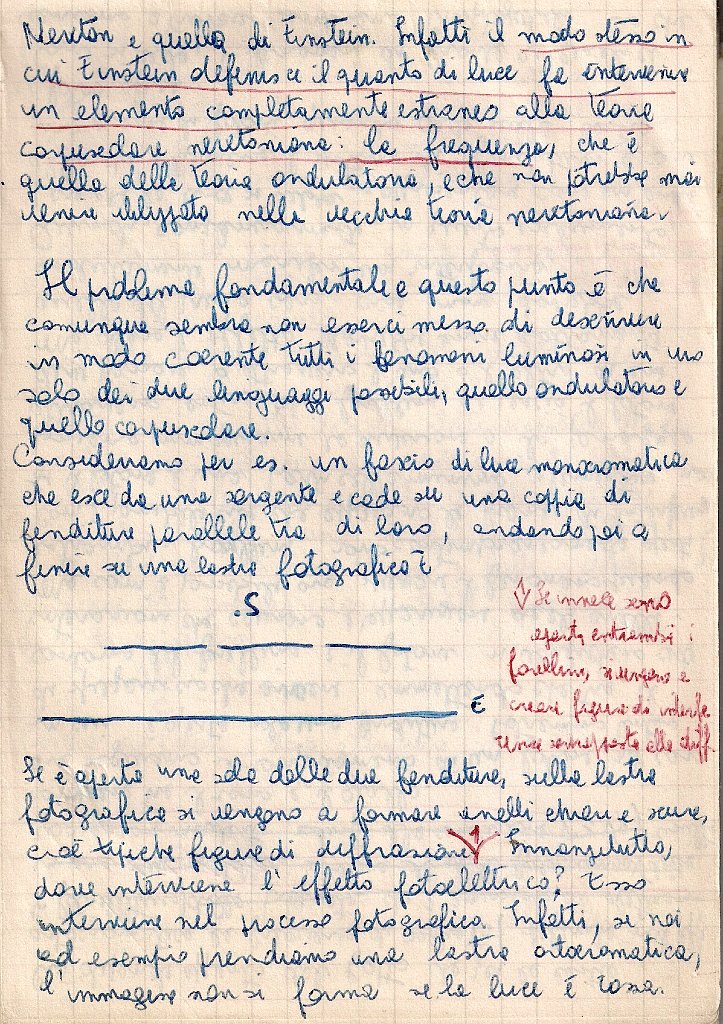 Newton e quella di Einstein. Infatti il modo stesso in
cui Einstein definisce il quanto di luce fa intervenire
un elemento completamente estraneo alla teoria
corpuscolare newtoniana: la frequenza, che è
quella della teoria ondulatoria, e che non potrebbe mai
venire utilizzata nella vecchia teoria newtoniana.
Il problema fondamentale a questo punto è che
comunque sembra non esserci mezzo di descrivere
in modo coerente tutti i fenomeni luminosi in uno
solo dei due linguaggi possibili, quello ondulatorio e
quello corpuscolare.
Consideriamo per es. un fascio di luce monocromatica
che esce da una sorgente e cade su una coppia di
fenditure parallele tra di loro, andando poi a
finire su una lastra fotografica E
.S
E
Se è aperta una sola delle due fenditure, sulla lastra
fotografica si vengono a formare anelli chiari e scuri,
cioè tipiche figure di diffrazione 1 Innanzitutto,
dove interviene l'effetto fotoelettrico? Esso
interviene nel processo fotografico. Infatti, se noi
ad esempio prendiamo una lastra ortocromatica,
l'immagine non si forma se la luce è rossa.
1 Se invece sono
aperti entrambi i
forellini, si vengono a
creare figure di interfe
renza sovrapposte alla diff.